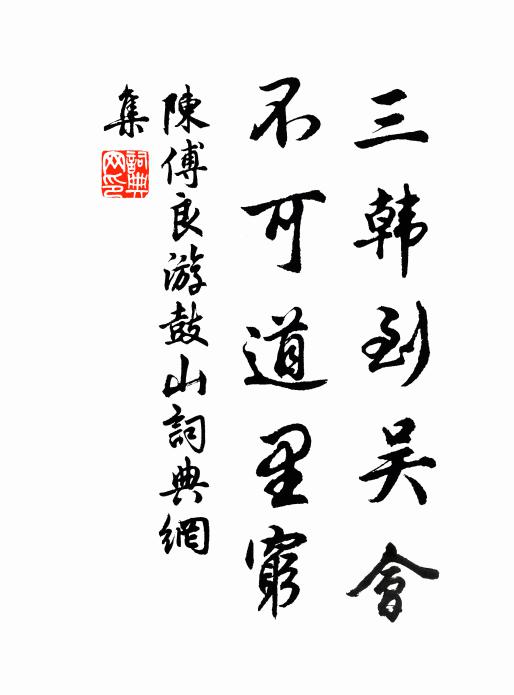 三韩到吴會
不可道里窮
陳傅良游鼓山詞典網
集
詞典网印